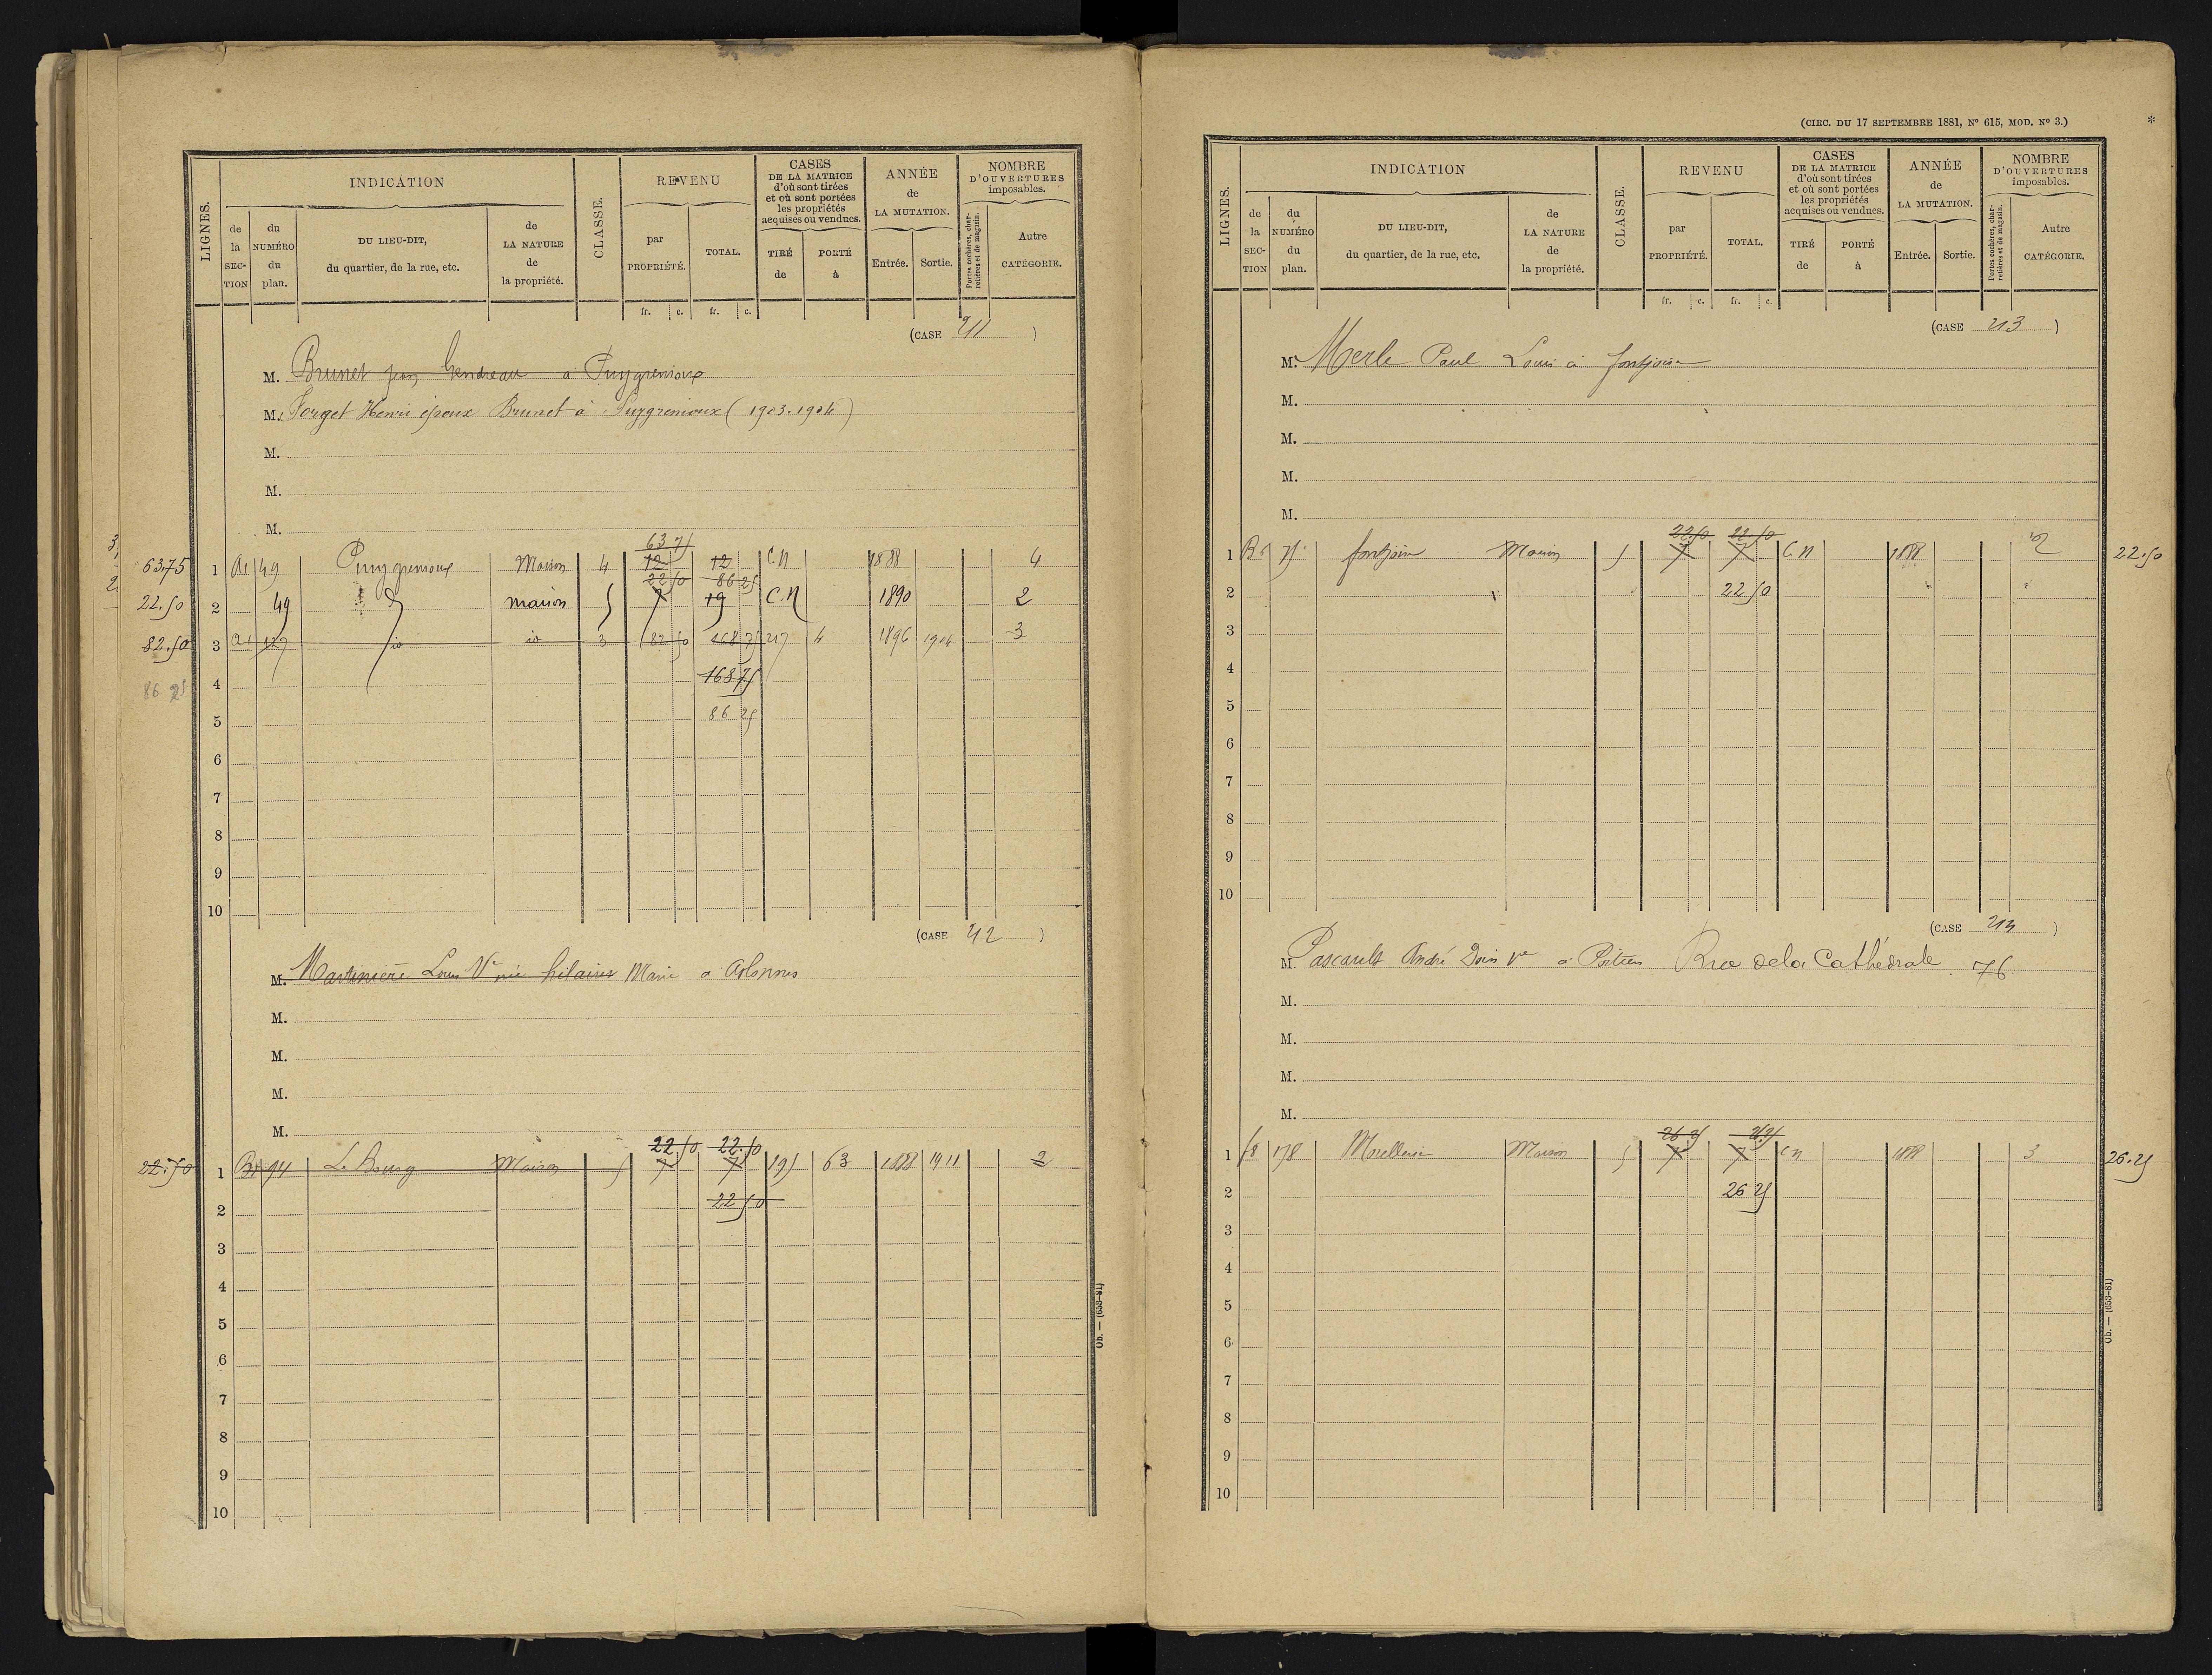 LIGNES.
INDICATION
de la SECTION
du NUMÉRO du plan.
DU LIEU-DIT, du quartier, de la rue, etc.
de LA NATURE de la propriété.
CLASSE.
REVENU
par PROPRIÉTÉ.
TOTAL.
CASES DE LA MATRICE d'où sont tirées et où sont portées les propriétés acquises ou vendues.
TIRÉ de
PORTÉ à
ANNÉE de LA MUTATION.
Entrée. Sortie.
NOMBRE D'OUVERTURES imposables.
Portes cochères, charretières et de magasin.
Autre CATÉGORIE.
fr. c. fr. c.
(CASE 211 )
M. Brunet Jean Gendreau à Puygremoux
M. Forget Henri époux Brunet à Puygremoux (1903.1904)
M.
M.
M.
63 75
63.75 1 A1 49 Puygremoux Maison 4 12 12 C.N 1888 4
22 50 86 25
22.50 2 49 d maison 5 7 19 C.N 1890 2
82.50 3 A1 127 io io 3 82 50 168 75 217 4 1896 1904 3
86 25 4 168 75
5 86 25
6
7
8
9
10
(CASE 212 )
M. Martinière Louis Ve née hilaires Marie à
M.
M.
M.
M.
22.50 22.50
22.50 1 B1 94 Le Bourg Maison 5 7 7 195 63 1888 1911 2
2 22 50
3
4
5
6
7
8
9
10
Ob. — (653-81)
(CIRC. DU 17 SEPTEMBRE 1881, N° 615, MOD. N° 3.) *
LIGNES.
INDICATION
de la SECTION
du NUMÉRO du plan.
DU LIEU-DIT, du quartier, de la rue, etc.
de LA NATURE de la propriété.
CLASSE.
REVENU
par PROPRIÉTÉ.
TOTAL.
CASES DE LA MATRICE d'où sont tirées et où sont portées les propriétés acquises ou vendues.
TIRÉ de
PORTÉ à
ANNÉE de LA MUTATION.
Entrée. Sortie.
NOMBRE D'OUVERTURES imposables.
Portes cochères, charretières et de magasin.
Autre CATÉGORIE.
fr. c. fr. c.
(CASE 213 )
M. Merle Paul Louis à fontjoise
M.
M.
M.
M.
22.50 22.50
1 75 fontjoise Maison 5 7 7 C N 1888 2 22.50
2 22 50
3
4
5
6
7
8
9
10
(CASE 214 )
M. Pascault André Ve à Poitiers Rue de la Cathédrale 76
M.
M.
M.
M.
26 25 26.25
1 178 Morellerie Maison 5 7 7 C N 1888 3 26.25
2 26 25
3
4
5
6
7
8
9
10
Ob. — (653-81)